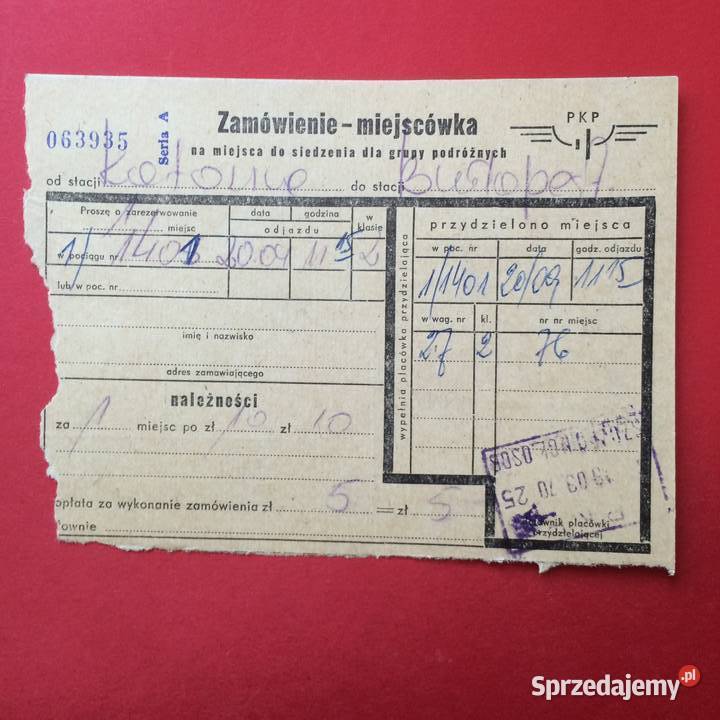 063935 Seria A Zamówienie - miejscówka PKP
na miejsca do siedzenia dla grupy podróżnych
od stacji Katowice do stacji Budapest
Proszę o zarezerwowanie data godzina w klasie
1 miejsc odjazdu
w pociągu nr 1/1401 20.09 11 15 2
lub w poc. nr
imię i nazwisko
adres zamawiającego
wypełnia placówka przydzielająca
przydzielono miejsca
w poc. nr data godz. odjazdu
1/1401 20/09 11 15
w wag. nr kl. nr nr miejsc
27 2 76
należności
za 1 miejsc po zł 10 zł 10
opłata za wykonanie zamówienia zł 5 = zł 5
łownie
19 03 70 25
placówki
przydzielającej
Sprzedajemy.pl